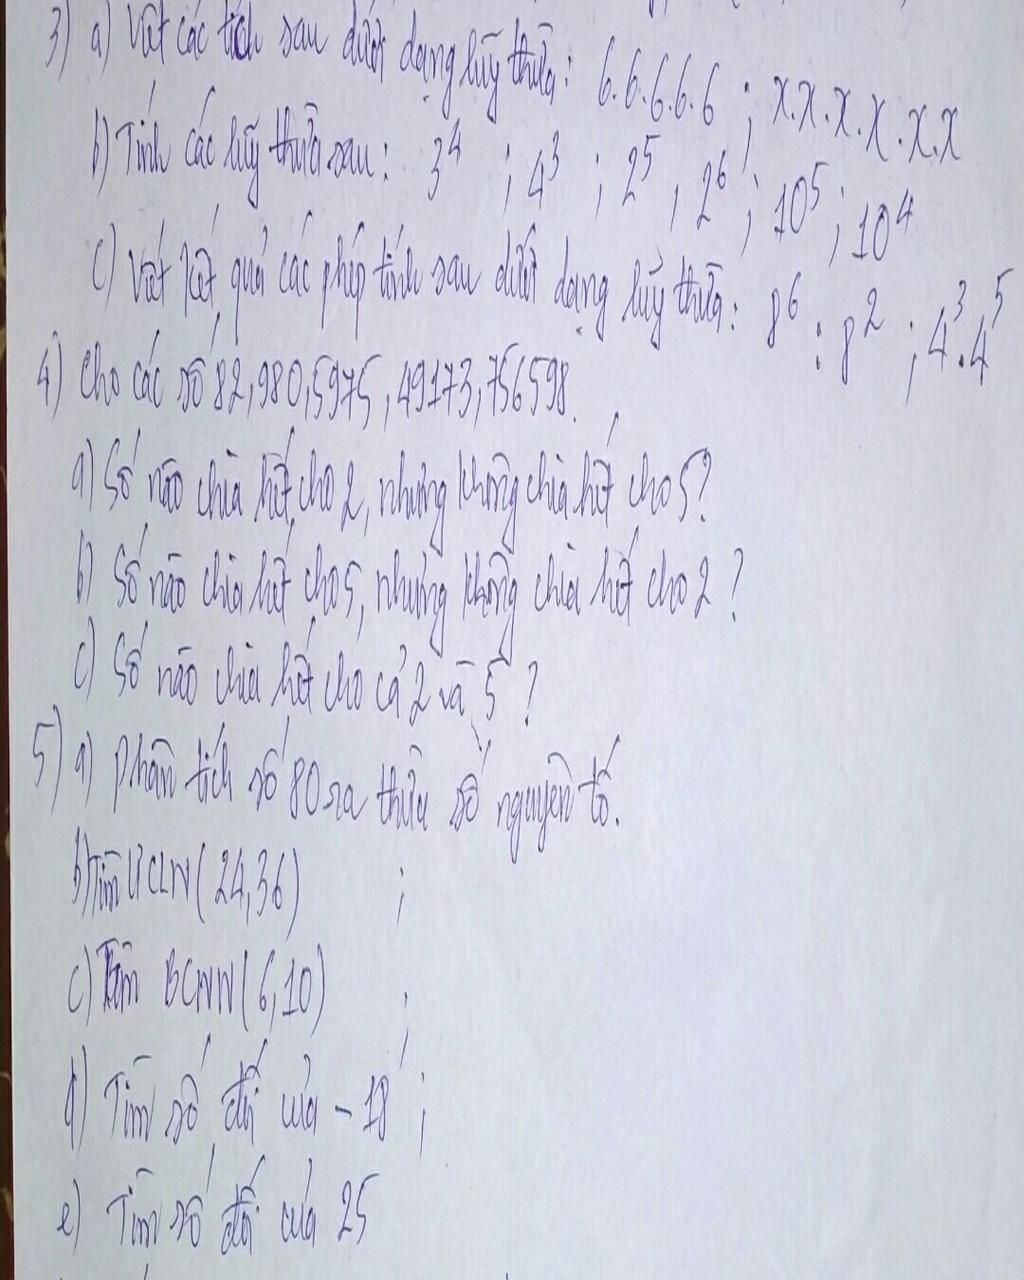 3) a) Viết các tích sau dưới dạng lũy thừa: 6.6.6.6.6 ; x.x.x.x.x.x
b) Tính các lũy thừa sau: 3⁴ ; 4³ ; 2⁵ ; 2⁶ ; 10⁵ ; 10⁴
c) Viết kết quả các phép tính sau dưới dạng lũy thừa: 8⁶ : 8² ; 4³.4⁵
4) Cho các số 82, 980, 5975, 49173, 756598.
a) Số nào chia hết cho 2, nhưng không chia hết cho 5?
b) Số nào chia hết cho 5, nhưng không chia hết cho 2?
c) Số nào chia hết cho cả 2 và 5?
5) a) Phân tích số 80 ra thừa số nguyên tố.
b) Tìm ƯCLN(24,36) ;
c) Tìm BCNN(6,10) ;
d) Tìm số đối của -18 ;
e) Tìm số đối của 25